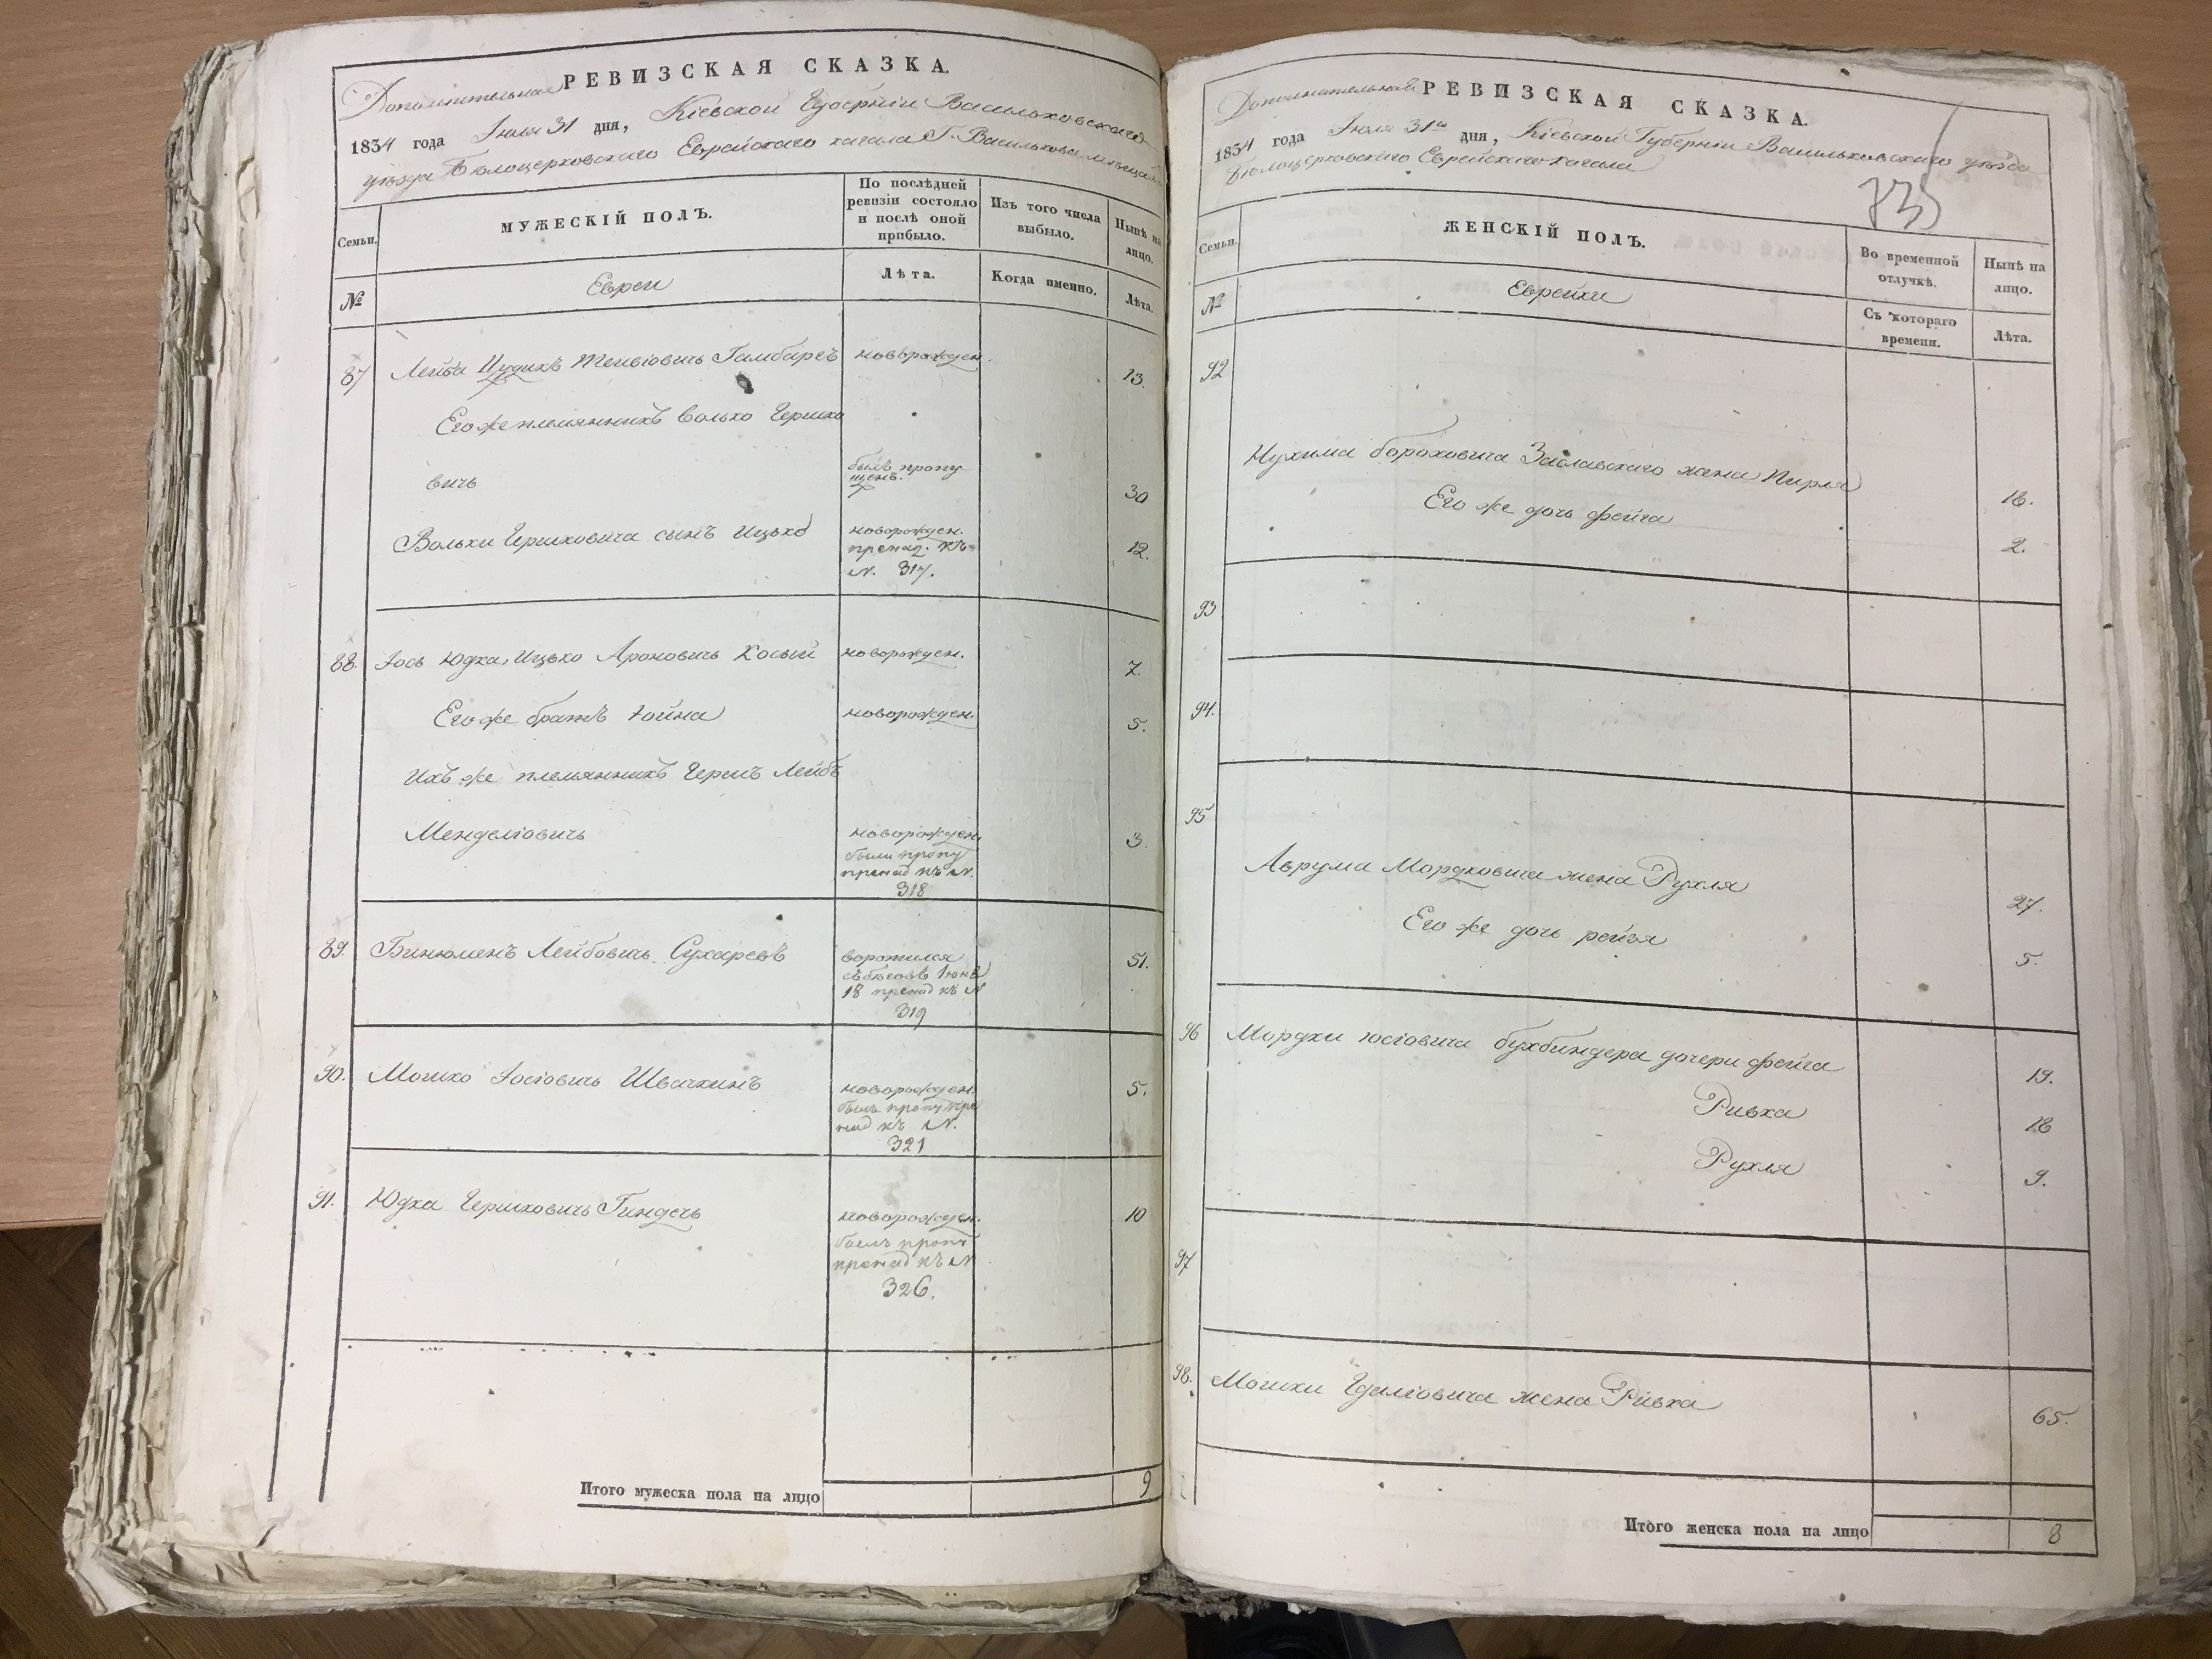 Дополнительная РЕВИЗСКАЯ СКАЗКА.
1834 года Іюля 31 дня, Кіевской Губерніи Васильковскаго
уѣзда Бѣлоцерковскаго Еврейскаго кагала Г. Василькова
Семьи.
МУЖЕСКІЙ ПОЛЪ.
По послѣдней ревизіи состояло и послѣ оной прибыло.
Изъ того числа выбыло.
Нынѣ на лицо.
№
Евреи
Лѣта.
Когда именно.
Лѣта.
87 Лейба новорожден. 13.
Его же племянникъ Волько Гершко
вичь былъ пропу 30
щенъ.
Вольки Гершковича сынъ Ицько новорожден. 12.
принад. къ
N. 317.
88. Іось Юдка, Ицько Ароновичь Косый новорожден. 7.
Его же братъ Іойна новорожден. 5.
Ихъ же племянникъ Герсъ Лейбъ
Менделіовичь новорожден. 3.
были пропу
принад къ N.
318
89. Бинюменъ Лейбовичь Сухаревъ воротился 51.
съ бѣговъ Іюня
18 принад къ N
319
90. Мошко Іосіовичь Швачкинъ новорожден. 5.
былъ пропу при
над къ N.
321
91. Юдка Гершковичь Гиндечь новорожден. 10
былъ пропу
принад къ N
326.
Итого мужеска пола на лицо 9
Дополнительная РЕВИЗСКАЯ СКАЗКА.
1834 года Іюля 31го дня, Кіевской Губерніи Васильковскаго уѣзда
Бѣлоцерковскаго Еврейскаго кагала
735
Семьи.
ЖЕНСКІЙ ПОЛЪ.
Во временной отлучкѣ.
Нынѣ на лицо.
№
Еврейки
Съ котораго времени.
Лѣта.
92
Нухима Бороховича Заславскаго жена Пирля 18.
Его же дочь Фейга 2.
93
94.
95
Аврума Мордковича жена Рухля 27.
Его же дочь Рейзя 5.
96 Мордки Іосіовича Бухбиндера дочери Фейга 19.
Ривка 18
Рухля 9.
97
98. Мошки Гдаліовича жена Ривка 65.
Итого женска пола на лицо 8